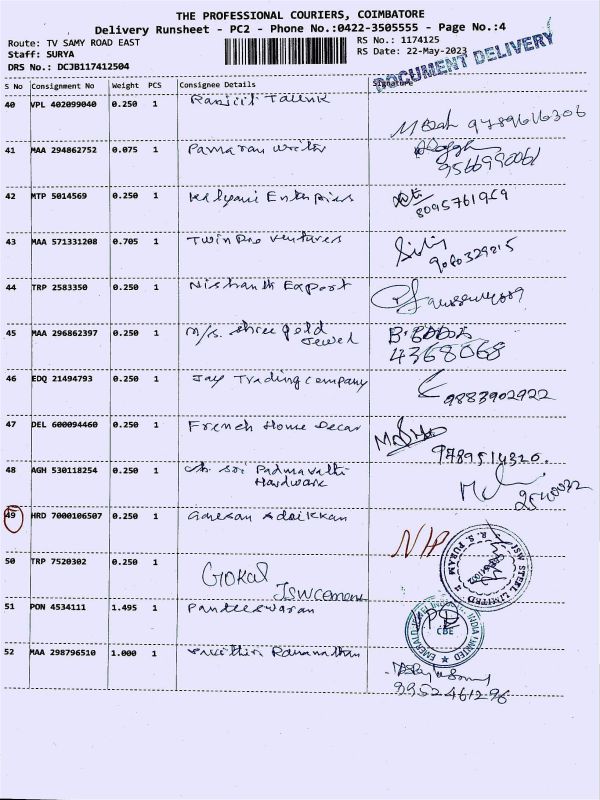 THE PROFESSIONAL COURIERS, COIMBATORE
Delivery Runsheet - PC2 - Phone No.:0422-3505555 - Page No.:4
Route: TV SAMY ROAD EAST
RS No.: 1174125
Staff: SURYA
RS Date: 22-May-2023
DRS No.: DCJB117412504
DOCUMENT DELIVERY
S No Consignment No Weight PCS Consignee Details Signature
40 VPL 402099040 0.250 1 Ranjiit
9789616306
41 MAA 294862752 0.075 1
9566990061
42 MTP 5014569 0.250 1 Kalyani Enterpries
8095761959
43 MAA 571331208 0.705 1 Twin Pro ventures
9080329215
44 TRP 2583350 0.250 1 Nishanth Export
45 MAA 296862397 0.250 1 M/s. Shree gold
Jewel
4368068
46 EDQ 21494793 0.250 1 Jay Trading company
9883902922
47 DEL 600094460 0.250 1 French House Decar
9789514320.
48 AGH 530118254 0.250 1 Sri Padmavathi
Hardware
2540032
49 HRD 7000106507 0.250 1 Ganesan Adaikkan
50 TRP 7520302 0.250 1
Gokul
JSW cement
JSW STEEL LIMITED
R. S. PURAM
51 PON 4534111 1.495 1 Pandeeswaran
EMERALD JEWEL INDUSTRY INDIA LIMITED
CBE
52 MAA 298796510 1.000 1 Ramanathan
9952461296